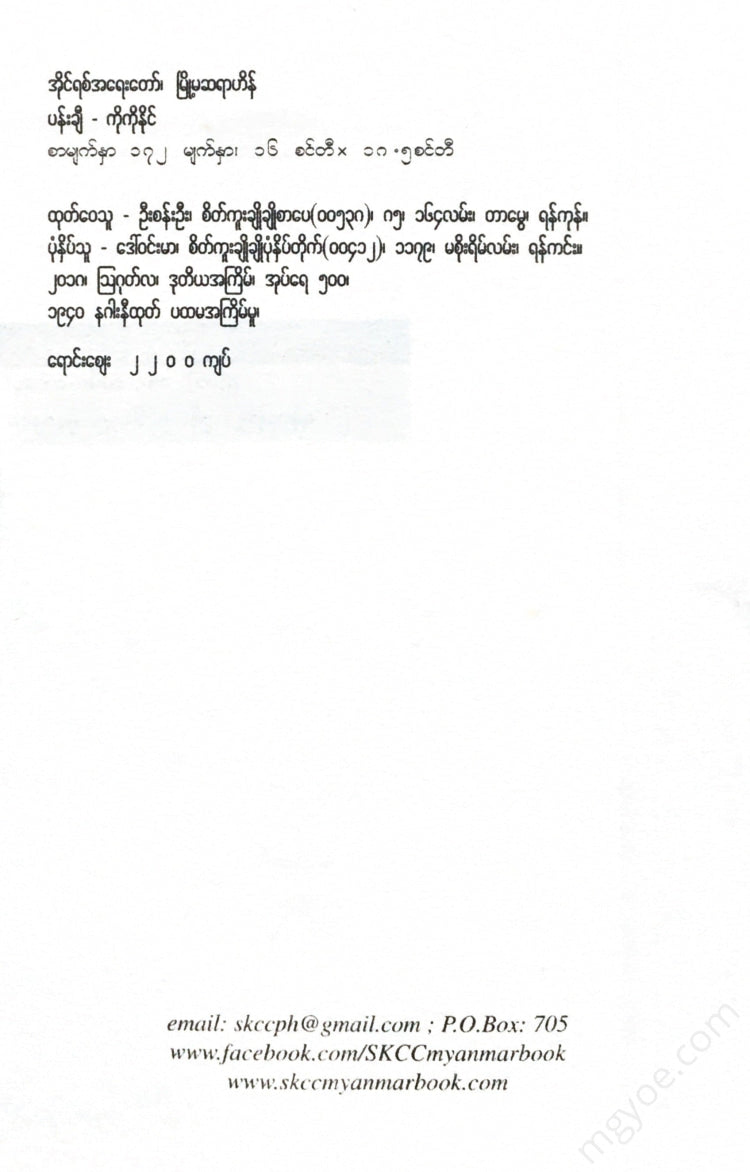 အိုင်ရစ်အရေးတော်၊ မြို့မဆရာဟိန်
ပန်းချီ - ကိုကိုနိုင်
စာမျက်နှာ ၁၇၂ မျက်နှာ၊ ၁၆ စင်တီ × ၁၈.၅စင်တီ
ထုတ်ဝေသူ - ဦးစန်းဦး၊ စိတ်ကူးချိုချိုစာပေ(၀၀၅၃၈)၊ ဂ၅၊ ၁၆၄လမ်း၊ တာမွေ၊ ရန်ကုန်။
ပုံနှိပ်သူ - ဒေါ်ဝင်းမာ၊ စိတ်ကူးချိုချိုပုံနှိပ်တိုက်(၀၀၄၁၂)၊ ၁၁၇၉၊ မစိုးရိမ်လမ်း၊ ရန်ကင်း။
၂၀၁၈၊ ဩဂုတ်လ၊ ဒုတိယအကြိမ်၊ အုပ်ရေ ၅၀၀၊
၁၉၄၀ နဂါးနီထုတ် ပထမအကြိမ်မူ၊
ရောင်းဈေး ၂၂၀၀ ကျပ်
email: skccph@gmail.com ; P.O.Box: 705
www.facebook.com/SKCCmyanmarbook
www.skccmyanmarbook.com
mgyoe.com